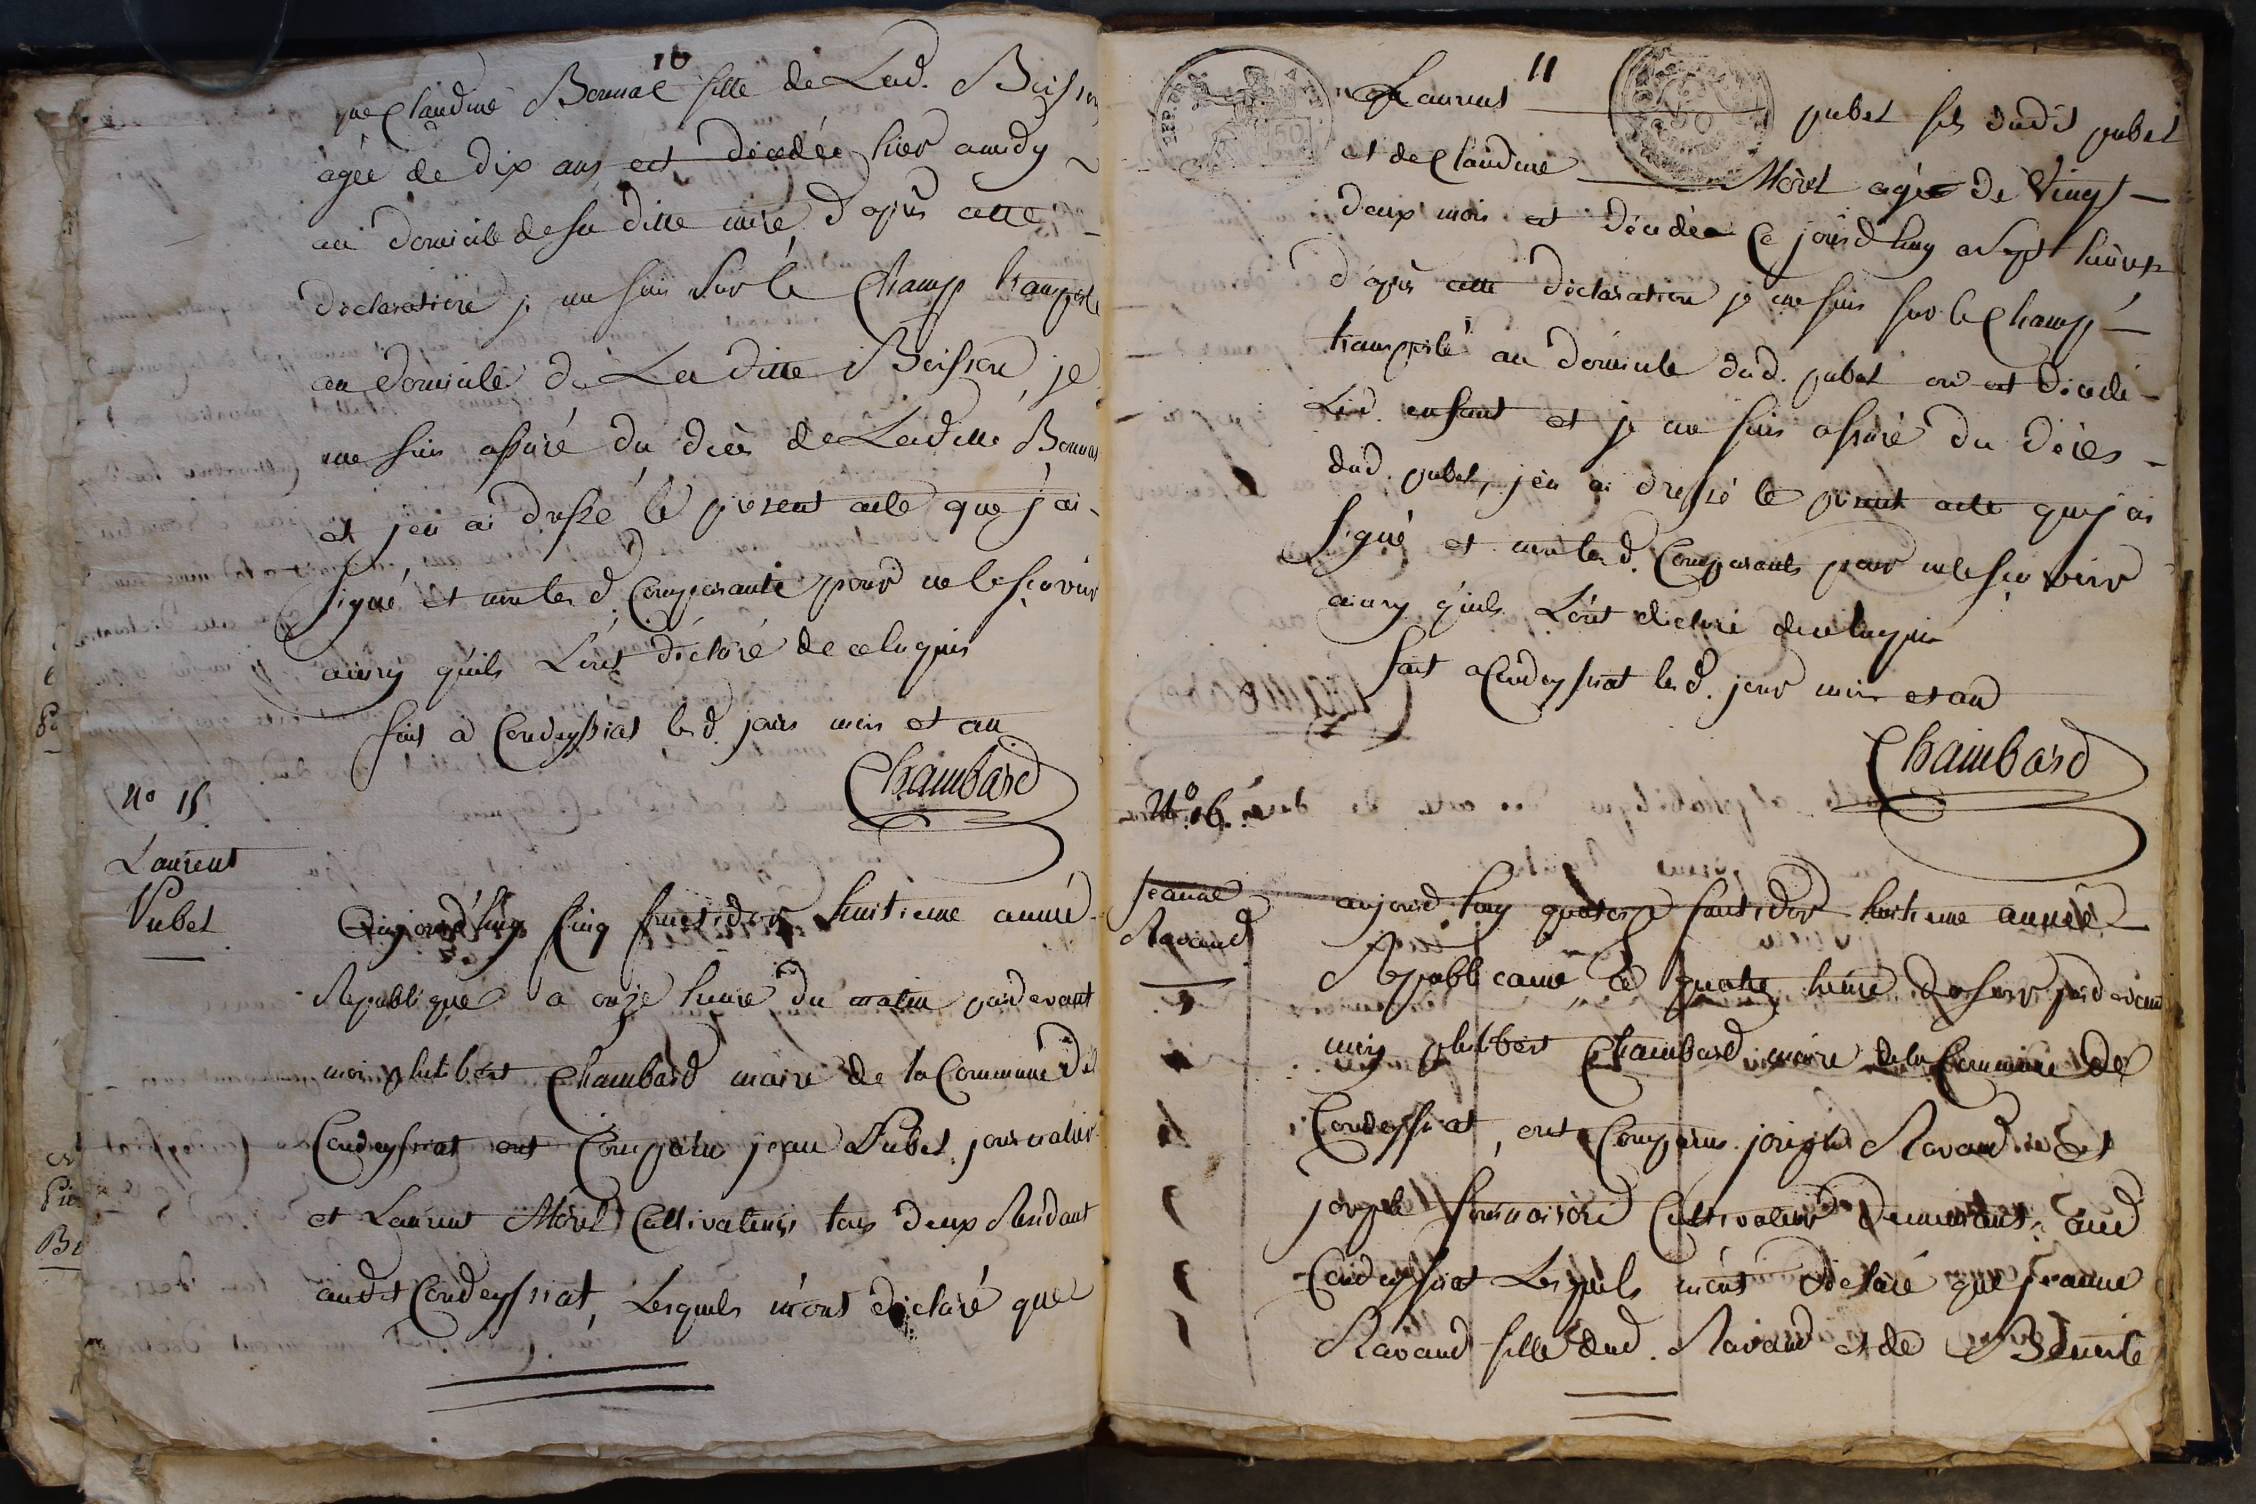 10
que Claudine Bonnat fille de Lad. Boisson
agée de dix ans est décédée hier a midy
au domicile de sa ditte mere d'après cette
declaration je me suis sur le champ transporté
au domicile de La ditte Boisson, je
me suis assuré du decès de Laditte Bonnat
et j'en ai dressé le present acte que j'ai
signé et non les d. Comparants pour ne le sçavoir
ainsy qu'ils L'ont déclaré de ce Enquis
fait à Condeyssiat les d. jours mois et an
Chambard
No 15
Laurent
Pubet
Aujourd'huy Cinq fructidor huitieme année
Republique a onze heure du matin pardevant
moi philibert Chambard maire de la Commune de
Condeyssiat ont Comparu jean Pubet journalier
et Laurent Morel Cultivateurs tous deux Residant
audt Condeyssiat, Lesquels m'ont déclaré que
11
Laurent pubet fils dudit pubet
et de Claudine Morel agée de Vingt
deux mois est décédée Ce jourd'huy a Sept heures
d'après cette déclaration je me suis sur le Champ
transporté au domicile dud. pubet ou est décédé
Led. enfant et je me suis assuré du décès
dud pubet, j'en ai dressé le present acte que j'ai
signé et non les d. Comparants pour ne le sçavoir
ainsy qu'ils L'ont déclaré de ce Enquis
fait a Condeyssiat les d. jour mois et an
Chambard
No. 16.
Jeanne
Ravaud
aujourd'huy quatorze fructidor huitieme année
Republicaine a quatre heure du soir pardevant
moy philibert Chambard maire de la Commune de
Condeyssiat, ont Comparus joseph Ravaud et
joseph Cultivateur demeurant aud
Condeyssiat Lesquels m'ont déclaré que jeanne
Ravaud fille dud. Ravaud et de Benoite